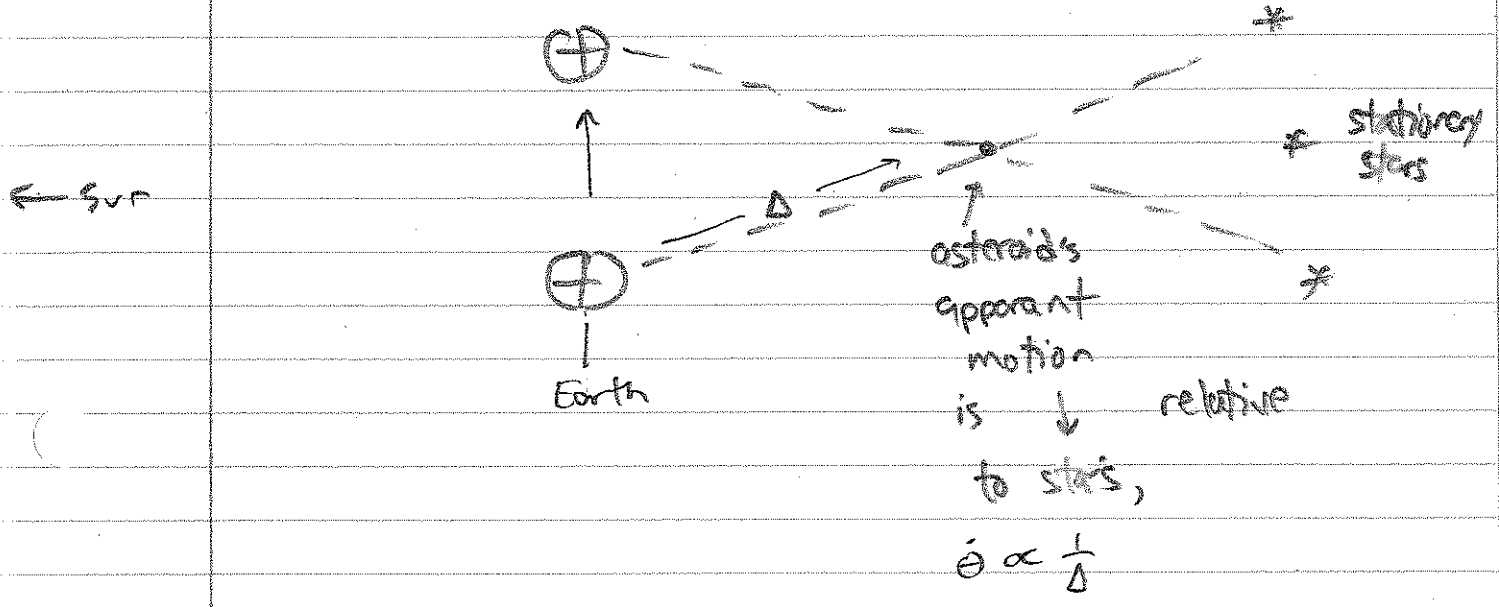 stationary
stars
← Sun
Δ
asteroid's
apparant
motion
Earth
is ↓ relative
to stars,
θ̇ ∝ 1/Δ